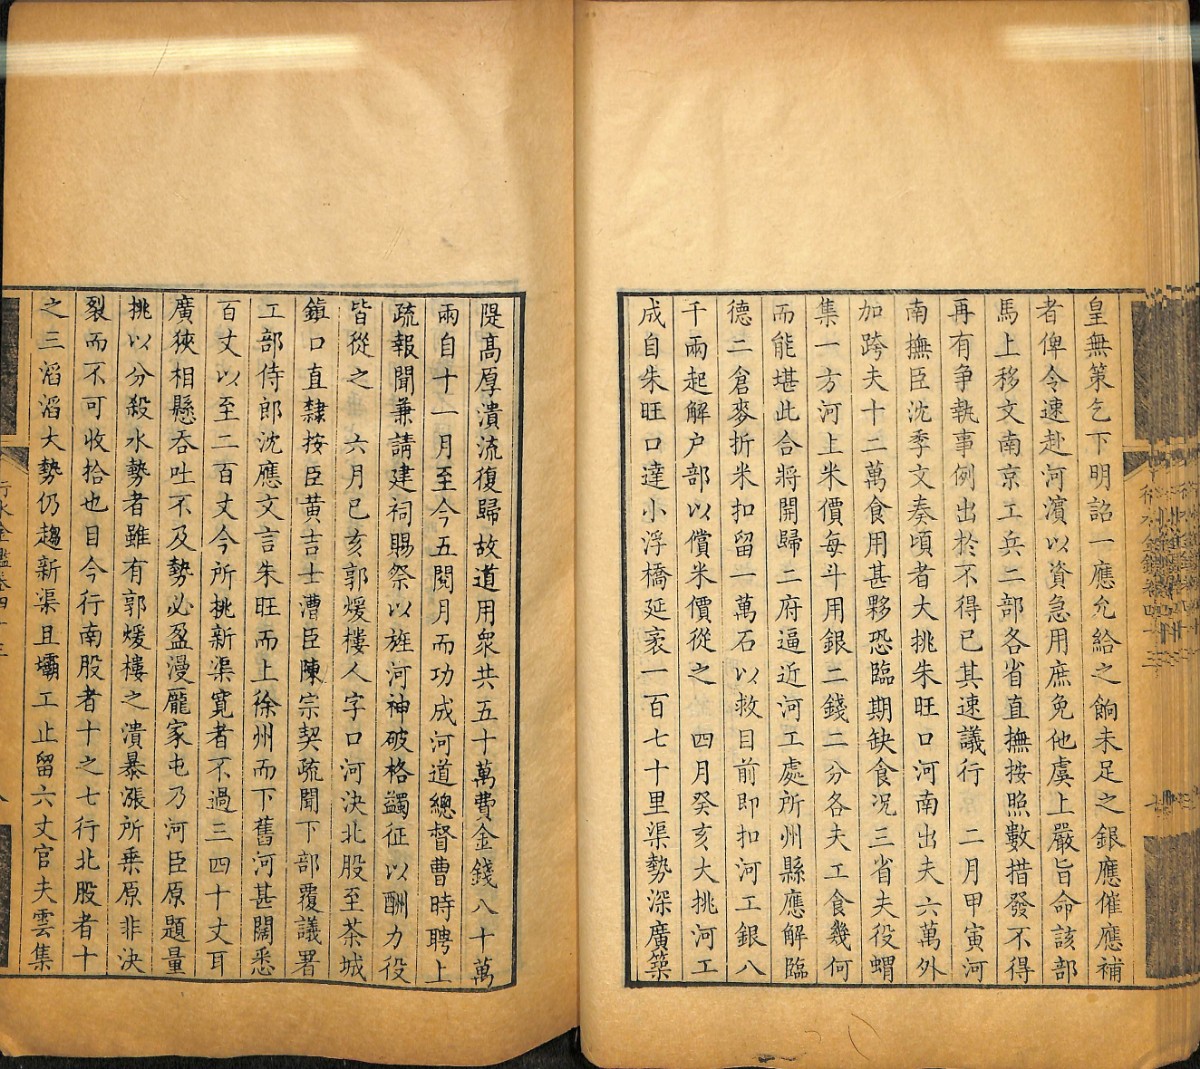 皇無策乞下明詔一應允給之餉未足之銀應催應補
者俾令速赴河濱以資急用庶免他虞上嚴旨命該部
馬上移文南京工兵二部各省直撫按照數措發不得
再有爭執事例出於不得已其速議行　二月甲寅河
南撫臣沈季文奏頃者大挑朱旺口河南出夫六萬外
加跨夫十二萬食用甚夥恐臨期缺食况三省夫役蝟
集一方河上米價每斗用銀二錢二分各夫工食幾何
而能堪此合將開歸二府逼近河工處所州縣應解臨
德二倉麥折米扣留一萬石以救目前即扣河工銀八
千兩起解户部以償米價從之　四月癸亥大挑河工
成自朱旺口達小浮橋延袤一百七十里渠勢深廣築
隄高厚潰流復歸故道用衆共五十萬費金錢八十萬
兩自十一月至今五閱月而功成河道總督曹時聘上
疏報聞兼請建祠賜祭以旌河神破格蠲征以酬力役
皆從之　六月已亥郭煖樓人字口河決北股至茶城
鎮口直隸按臣黄吉士漕臣陳宗契疏聞下部覆議署
工部侍郎沈應文言朱旺而上徐州而下舊河甚闊悉
百丈以至二百丈今所挑新渠寬者不過三四十丈耳
廣狹相懸吞吐不及勢必盈漫龎家屯乃河臣原題量
挑以分殺水勢者雖有郭煖樓之潰暴漲所乗原非決
裂而不可收拾也目今行南股者十之七行北股者十
之三滔滔大勢仍趨新渠且壩工止留六丈官夫雲集
行水金鑑卷四十三
八